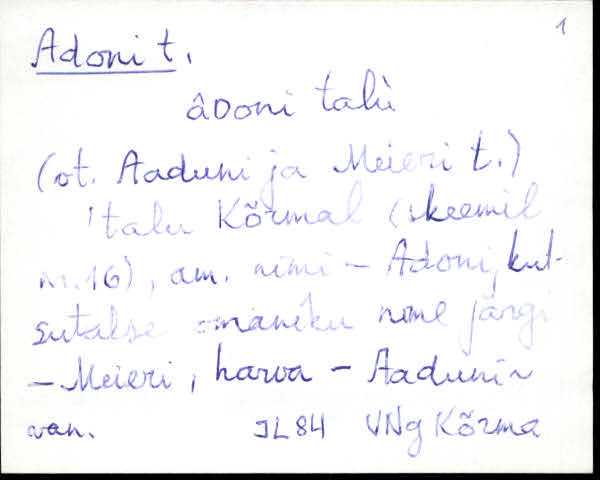 1
Adoni t.
âDoni talù
(vt. Aaduni ja Meieri t.)
'talu Kõrmal (skeemil
nr. 16), am. nimi – Adoni, kut-
sutakse omaniku nime järgi
– Meieri, harva – Aaduni ~
van. JL84 VNg Kõrma